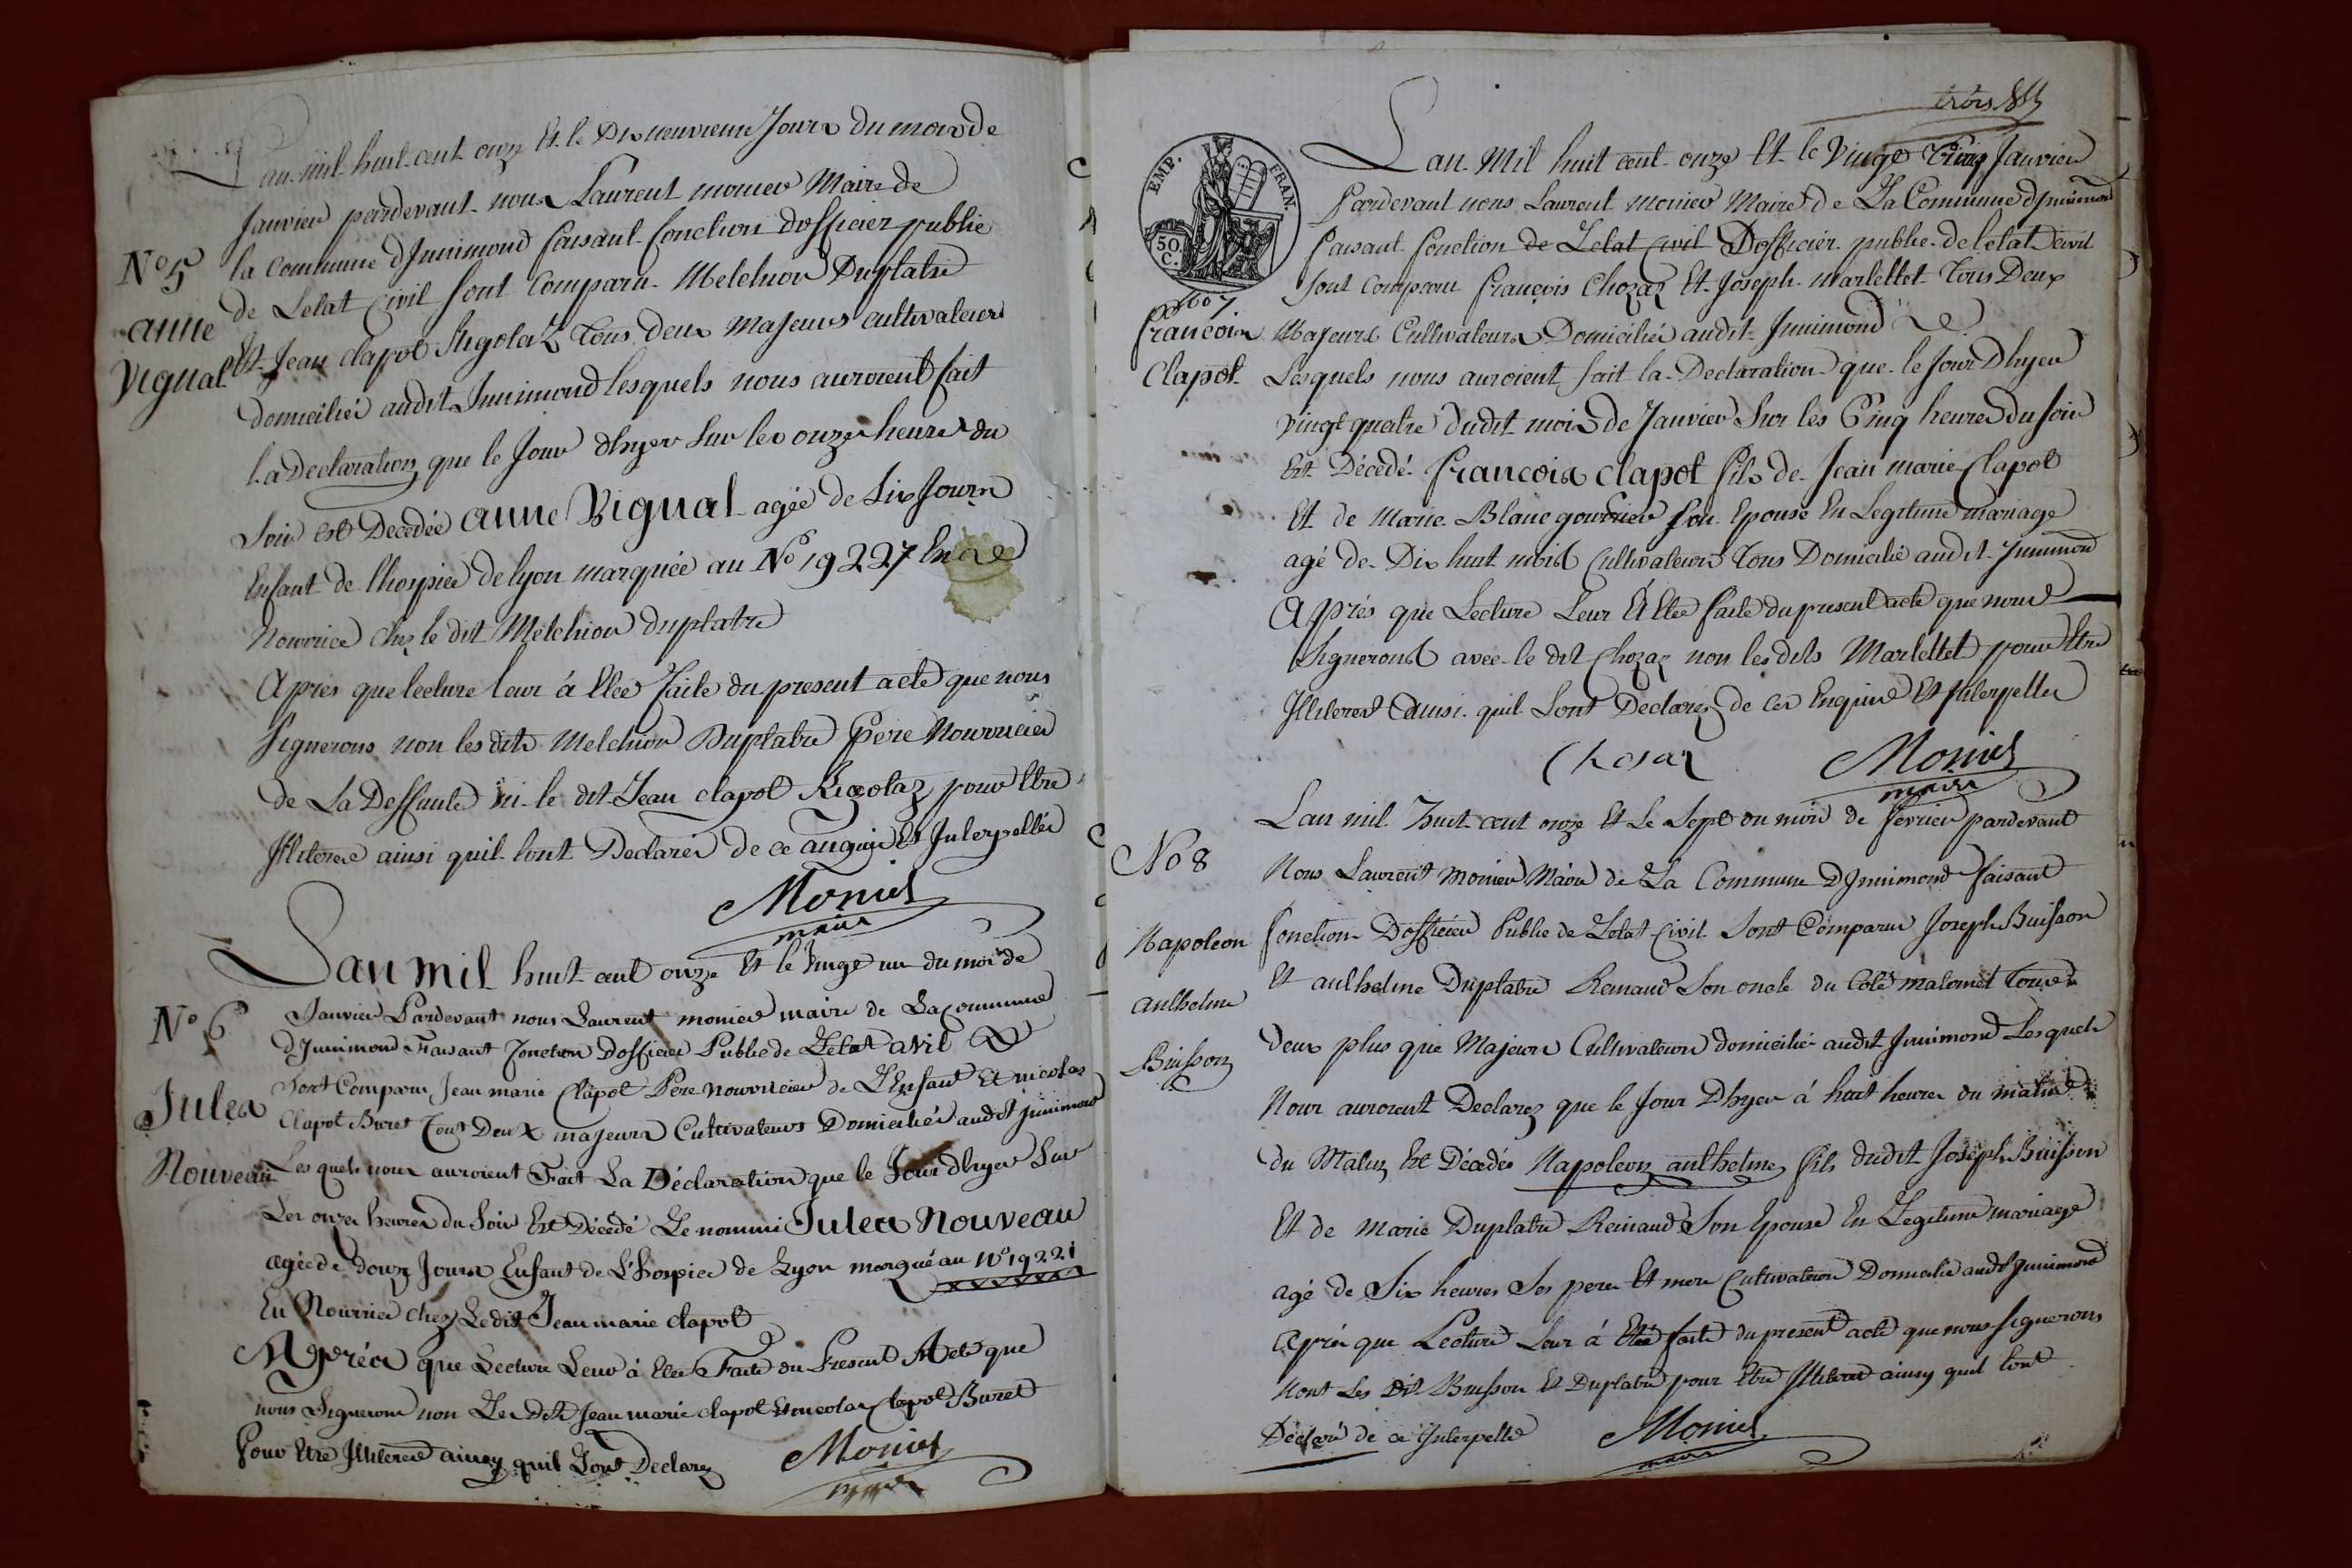 Lan mil huit cent onze Et le Dixneuvieme Jours du mois de
Janvier pardevant nous Laurent monier Maire de
la commune dJnnimond faisant fonction dofficier publie
de Letat Civil sont Comparu Melchior Duplatre
Et Jean clapot Rigolaz Tous deux majeurs cultivateurs
domicilié audit Jnnimond lesquels nous auroient fait
la Declaration que le Jour dhyer sur les onze heures du
Soir est Decedée anne Vignal agée de Six Jours
Enfant de lhospice de lyon marquée au No 19227 En
Nourrice chez le dit Melchior duplatre
Apres que lecture leur á Etée faite du present acte que nous
signerons non les dits Melchior Duplatre pere Nourricier
de La Deffunte ni le dit Jean clapot Rigolaz pour Etre
Illiterés ainsi quil sont Declarés de ce Enquis Et Interpellés
Monier
maire
No 5
anne
Vignal
Lan mil huit cent onze Et le Vingt un du mois de
Janvier Pardevant nous Laurent monier maire de La commune
dJnnimond Faisant fonction Dofficier Publie de Letat civil
Sont Comparu Jean marie Clapot Pere nourricier de L'Enfant Et nicolas
Clapot Buret Tout Deux majeurs Cultivateurs Domicilié audit jnnimond
Les quels nous auroient Fait La Déclaration que le Jour dhyer Sur
Les onze heures du Soir Est Décédé Le nommé Jules Nouveau
agée de douze Jours Enfant de L'hospice de Lyon marqué au No 19221
En Nourrice chez Ledit Jean marie clapot
Aprés que Lecture Leur á Etée Faite du Present Acte que
nous Signerons non Les Dits Jean marie clapot Et nicolas Clapot Buret
Pour Etre Illiterés ainsy quil Sont Declarez
Monier
maire
No 6
Jules
Nouveau
trois
EMP. FRAN.
50.
C.
Lan Mil huit cent onze Et le Vingt Cinq Janvier
Pardevant nous Laurent monier Maire de La Commune dJnnimond
faisant fonction de Letat Civil Dofficier publie de letat Civil
Sont Comparu françois Chozaz Et Joseph Marlettet Tous Deux
Majeurs Cultivateurs Domicilié audit Jnnimond
Lesquels nous auroient fait la Declaration que le Jour Dhyer
vingt quatre dudit mois de Janvier Sur les Cinq heures du Soir
Est Décedé francois clapot fils de Jean marie Clapot
Et de Marie Blanc gourrier son Epouse En Legitime mariage
agé de Dix huit mois Cultivateurs Tous Domicilié audit Jnnimond
Aprés que Lecture Leur á Etée faite du present acte que nous
Signerons avec le dit Chozaz non les dits Marlettet pour Etre
Illiterés ainsi quil Sont Declarez de ces Enquis Et Interpellés
Chosaz
Monier
maire
No 7
francois
Clapot
Lan mil huit cent onze Et Le Sept du mois de fevrier pardevant
Nous Laurent monier Maire de La Commune DJnnimond faisant
fonction Dofficier Publie de Letat Civil Sont Comparu Joseph Buisson
Et anthelme Duplatre Renaud Son oncle du Coté maternel Tous
deux plus que Majeurs Cultivateurs domicilié audit Jnnimond Lesquels
Nous auroient Declarez que le Jour Dhyer á huit heures du matin
du Matin Est Décedés Napoleon anthelme fils dudit Joseph Buisson
Et de Marie Duplatre Reinaud Son Epouse En Legitime mariage
agé de Six heures Ses pere Et mere Cultivateurs Domicilié audit Jnnimond
Aprés que Lecture Leur á Etée faite du present acte que nous signerons
Nont Les Dit Buisson Et Duplatre pour Etre Illiteré ainsy quil Sont
Déclaré de ce Interpellé
Monier
maire
No 8
Napoleon
anthelme
Buisson